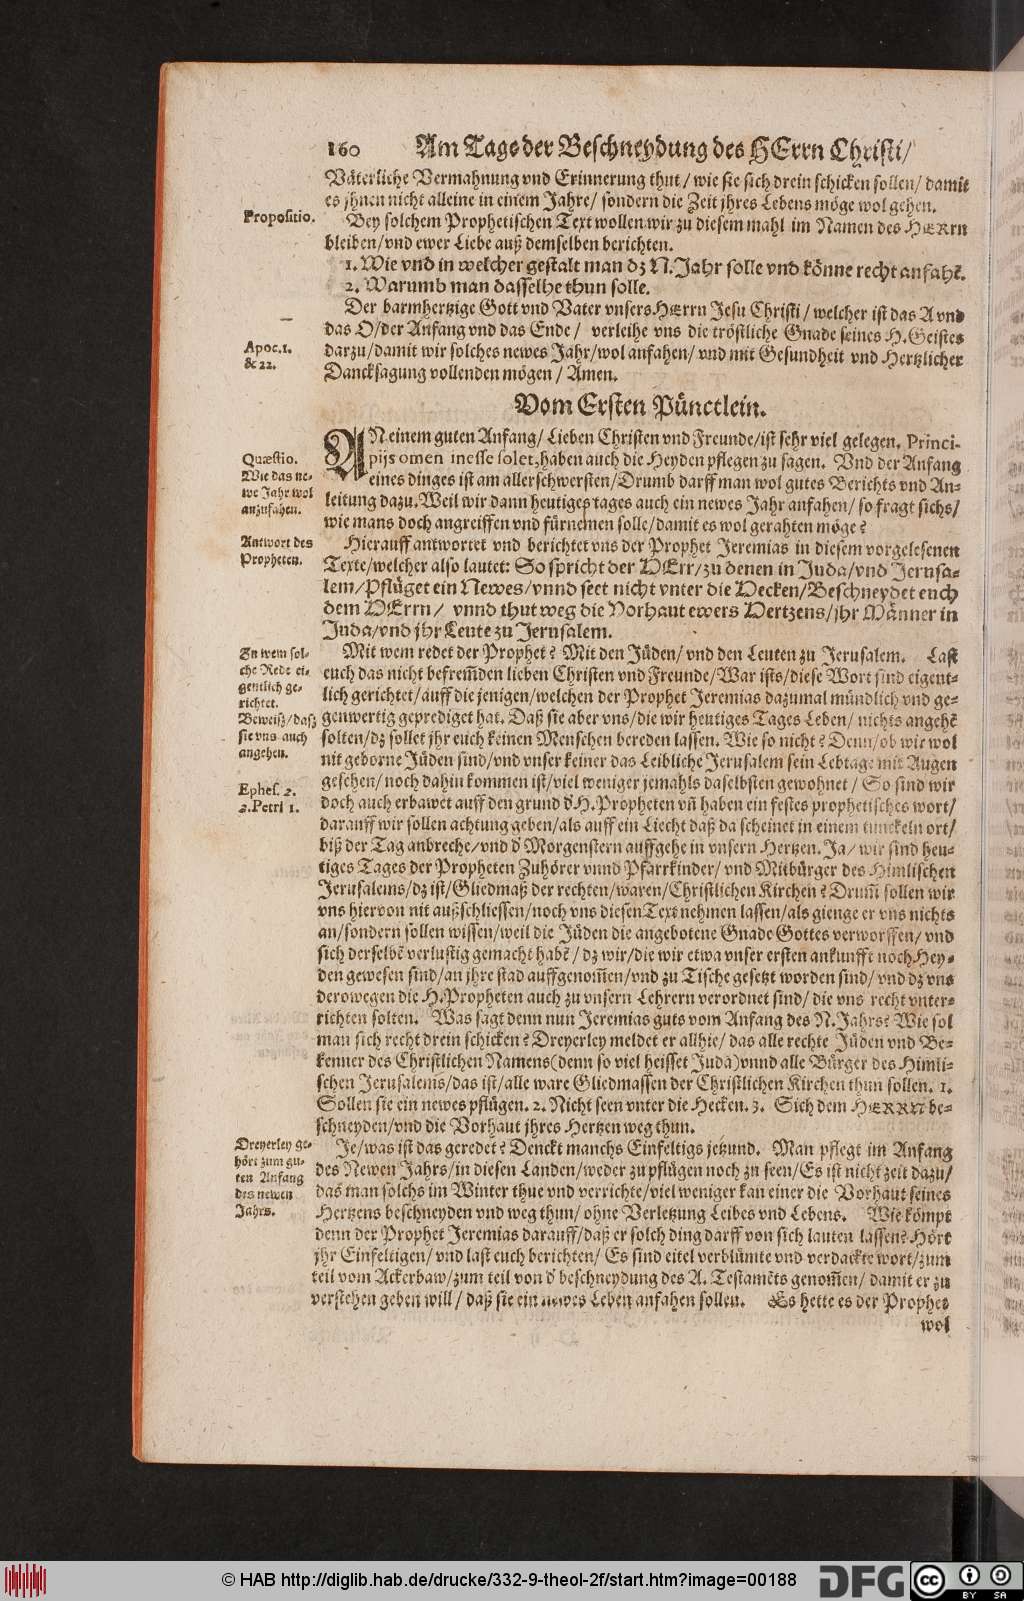 160 Am Tage der Beschneydung des HErrn Christi/
Väterliche Vermahnung vnd Erinnerung thut/ wie sie sich drein schicken sollen/ damit
es jhnen nicht alleine in einem Jahre/ sondern die Zeit jhres Lebens möge wol gehen.
Propositio.
Bey solchem Prophetischen Text wollen wir zu diesem mahl im Namen des HERrn
bleiben/ vnd ewer Liebe auß demselben berichten.
1. Wie vnd in welcher gestalt man dz N. Jahr solle vnd könne recht anfahē.
2. Warumb man dasselbe thun solle.
Der barmhertzige Gott vnd Vater vnsers HErrn Jesu Christi/ welcher ist das A vnd
das O/ der Anfang vnd das Ende/ verleihe vns die tröstliche Gnade seines H. Geistes
Apoc. 1.
& 22.
darzu/ damit wir solches newes Jahr/ wol anfahen/ vnd mit Gesundheit vnd Hertzlicher
Dancksagung vollenden mögen/ Amen.
Vom Ersten Pünctlein.
AN einem guten Anfang/ Lieben Christen vnd Freunde/ ist sehr viel gelegen. Princi-
Quæstio.
Wie das ne-
we Jahr wol
anzufahen.
pijs omen inesse solet, haben auch die Heyden pflegen zu sagen. Vnd der Anfang
eines dinges ist am allerschwersten/ Drumb darff man wol gutes Berichts vnd An-
leitung dazu. Weil wir dann heutiges tages auch ein newes Jahr anfahen/ so fragt sichs/
wie mans doch angreiffen vnd fürnemen solle/ damit es wol gerahten möge?
Antwort des
Propheten.
Hierauff antwortet vnd berichtet vns der Prophet Jeremias in diesem vorgelesenen
Texte/ welcher also lautet: So spricht der HErr/ zu denen in Juda/ vnd Jerusa-
lem/ Pflüget ein Newes/ vnnd seet nicht vnter die Hecken/ Beschneydet euch
dem HErrn/ vnnd thut weg die Vorhaut ewers Hertzens/ jhr Männer in
Juda/ vnd jhr Leute zu Jerusalem.
Zu wem sol-
che Rede ei-
gentlich ge-
richtet.
Mit wem redet der Prophet? Mit den Jüden/ vnd den Leuten zu Jerusalem. Last
euch das nicht befrem̃den lieben Christen vnd Freunde/ War ists/ diese Wort sind eigent-
lich gerichtet/ auff die jenigen/ welchen der Prophet Jeremias dazumal mündlich vnd ge-
Beweiß/ daß
sie vns auch
angehen.
genwertig geprediget hat. Daß sie aber vns/ die wir heutiges Tages Leben/ nichts angehē
solten/ dz sollet jhr euch keinen Menschen bereden lassen. Wie so nicht? Denn/ ob wir wol
nit geborne Jüden sind/ vnd vnser keiner das Leibliche Jerusalem sein Lebtage mit Augen
gesehen/ noch dahin kommen ist/ viel weniger jemahls daselbsten gewohnet/ So sind wir
Ephes. 2.
2. Petri 1.
doch auch erbawet auff den grund d' H. Propheten vñ haben ein festes prophetisches wort/
darauff wir sollen achtung geben/ als auff ein Liecht daß da scheinet in einem tunckeln ort/
biß der Tag anbreche/ vnd d' Morgenstern auffgehe in vnsern Hertzen. Ja/ wir sind heu-
tiges Tages der Propheten Zuhörer vnnd Pfarrkinder/ vnd Mitbürger des Himlischen
Jerusalems/ dz ist/ Gliedmaß der rechten/ waren/ Christlichen Kirchen? Drum̃ sollen wir
vns hiervon nit außschliessen/ noch vns diesen Text nehmen lassen/ als gienge er vns nichts
an/ sondern sollen wissen/ weil die Jüden die angebotene Gnade Gottes verworffen/ vnd
sich derselbē verlustig gemacht habē/ dz wir/ die wir etwa vnser ersten ankunfft noch Hey-
den gewesen sind/ an jhre stad auffgenom̃en/ vnd zu Tische gesetzt worden sind/ vnd dz vns
derowegen die H. Propheten auch zu vnsern Lehrern verordnet sind/ die vns recht vnter-
richten solten. Was sagt denn nun Jeremias guts vom Anfang des N. Jahrs? Wie sol
man sich recht drein schicken? Dreyerley meldet er allhie/ das alle rechte Jüden vnd Be-
kenner des Christlichen Namens (denn so viel heisset Juda) vnnd alle Bürger des Himli-
schen Jerusalems/ das ist/ alle ware Gliedmassen der Christlichen Kirchen thun sollen. 1.
Sollen sie ein newes pflügen. 2. Nicht seen vnter die Hecken. 3. Sich dem HERRN be-
schneyden/ vnd die Vorhaut jhres Hertzen weg thun.
Dreyerley ge-
hört zum gu-
ten Anfang
des newen
Jahrs.
Je/ was ist das geredet? Denckt manchs Einfeltigs jetzund. Man pflegt im Anfang
des Newen Jahrs/ in diesen Landen/ weder zu pflügen noch zu seen/ Es ist nicht zeit dazu/
das man solchs im Winter thue vnd verrichte/ viel weniger kan einer die Vorhaut seines
Hertzens beschneyden vnd weg thun/ ohne Verletzung Leibes vnd Lebens. Wie kömpt
denn der Prophet Jeremias darauff/ daß er solch ding darff von sich lauten lassen? Hört
jhr Einfeltigen/ vnd last euch berichten/ Es sind eitel verblümte vnd verdackte wort/ zum
teil vom Ackerbaw/ zum teil von d' beschneydung des A. Testamēts genom̃en/ damit er zu
verstehen geben will/ daß sie ein newes Leben anfahen sollen. Es hette es der Prophet
wol
© HAB http://diglib.hab.de/drucke/332-9-theol-2f/start.htm?image=00188
DFG
cc
BY SA